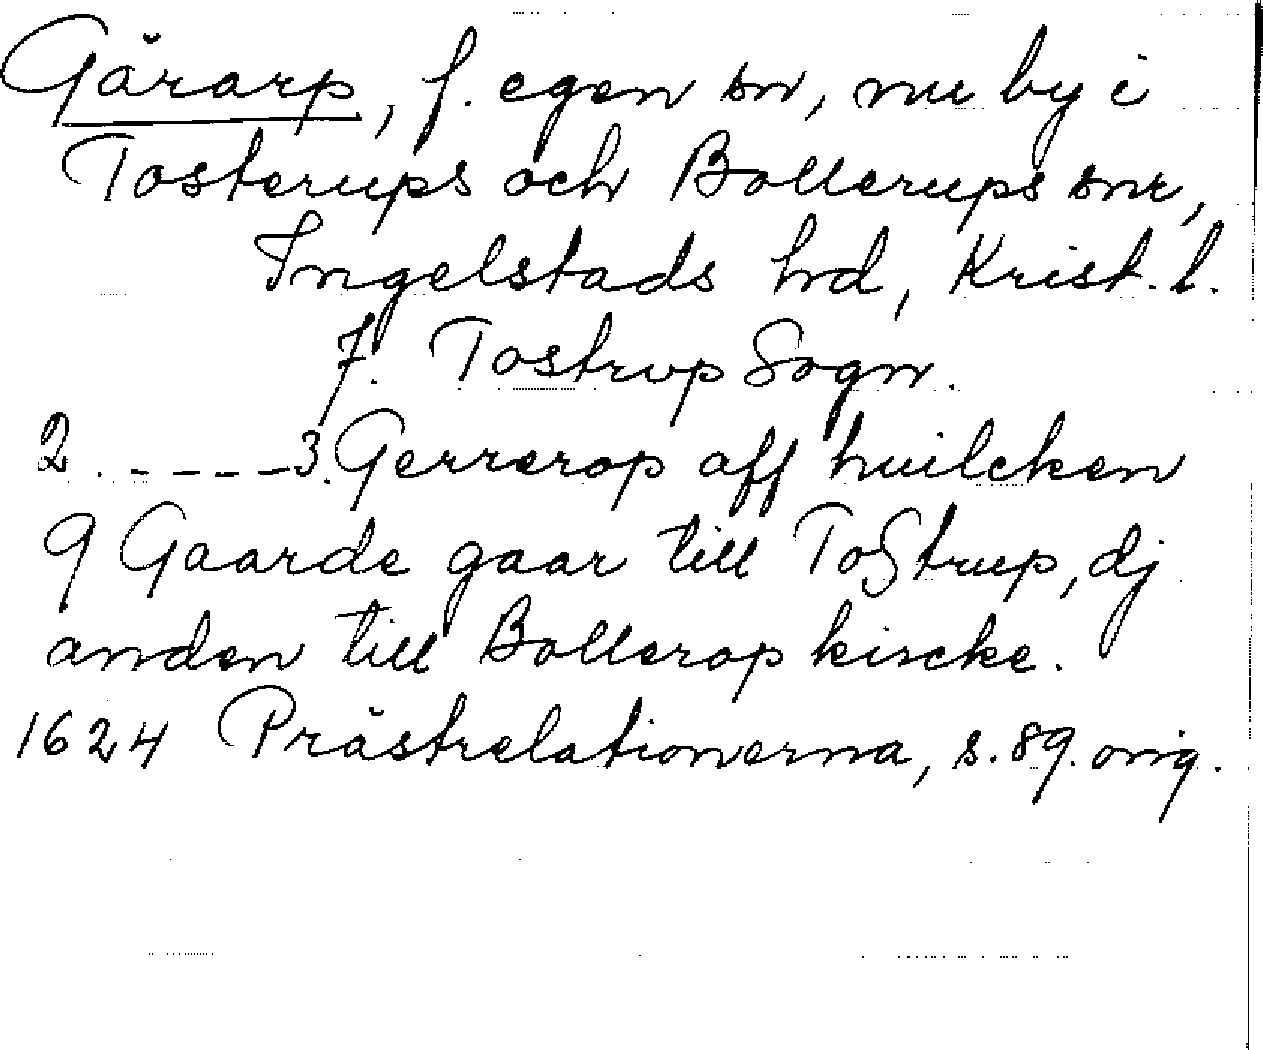 Gärarp, f. egen sn, nu by i
Tosterups och Bollerups snr,
Ingelstads hd, Krist. l.
7. Tostrup Sogn.
2. - - - - 3. Gerrerop aff huilcken
9 Gaarde gaar till Toßtrup, dj
anden till Bollerop kircke.
1624 Prästrelationerna, s. 89. orig.